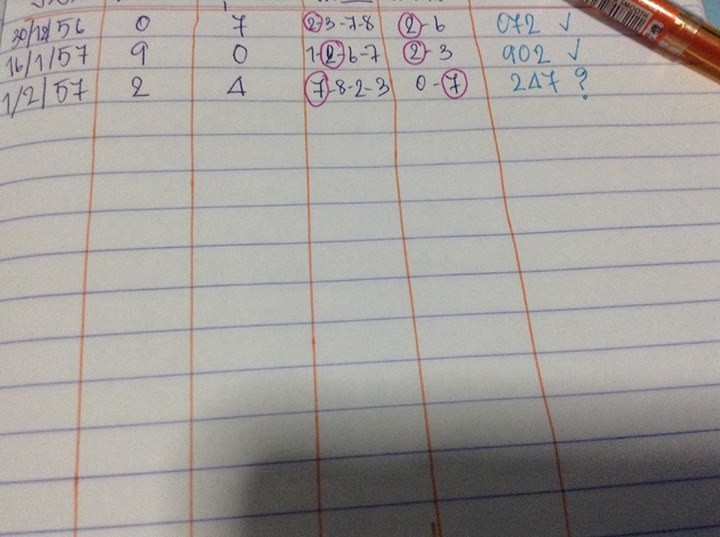 30/12/56 0 7 2-3-7-8 2-6 072 ✓
16/1/57 9 0 1-2-6-7 2-3 902 ✓
1/2/57 2 4 7-8-2-3 0-7 247 ?